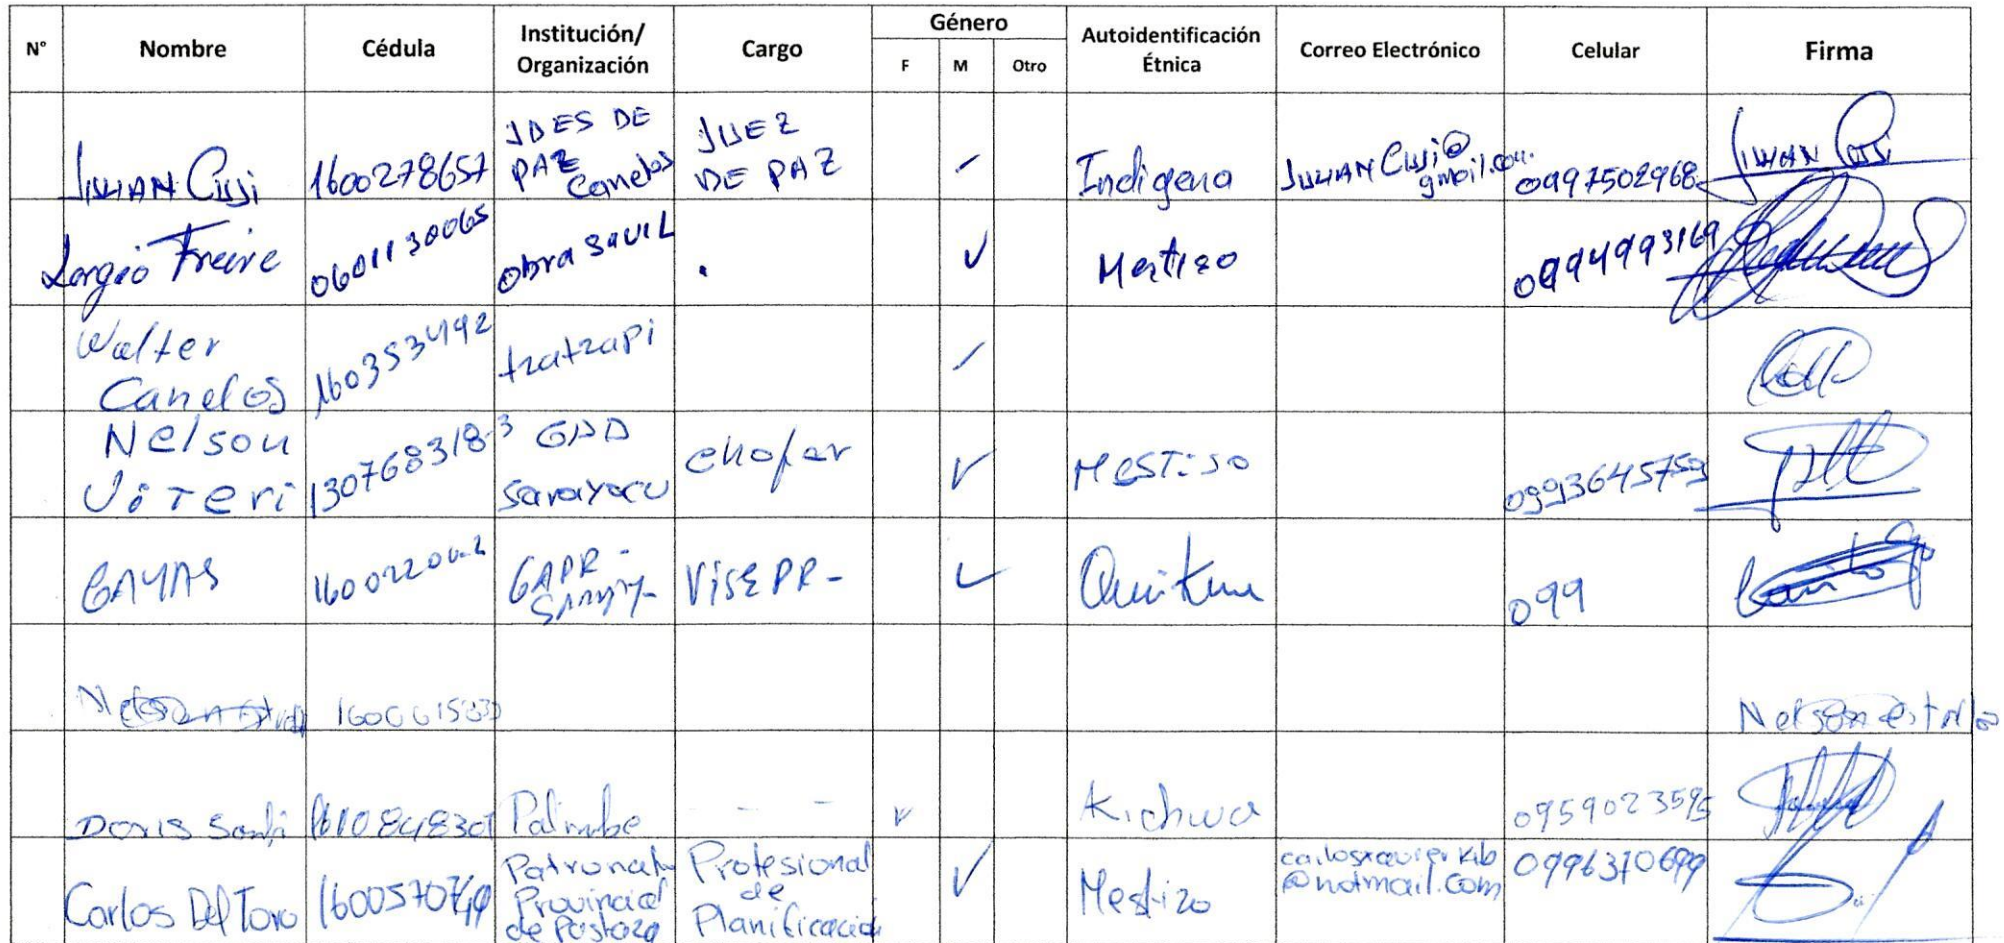 N° Nombre Cédula Institución/ Organización Cargo Género F M Otro Autoidentificación Étnica Correo Electrónico Celular Firma
JULIAN Cusi 1600278657 JDES DE PAZ Canelos JUEZ DE PAZ Indigena JULIAN Cusi@gmail.com 0997502968 JULIAN Cusi
Sergio Freire 0601130065 obra SAVIL Mestizo 0994993169
Walter Canelos 160353492 tzatzapi
Nelson ViTeri 130768318-3 GAD Sarayacu chofer MesTiso 0993645759
GAYAS GAPR - VISEPR- 099
Nelson estrella
Doris Santi Palimbe - - - Kichwa 0959023595
Carlos Del Toro Patronato Provincial de Pastaza Profesional de Planificación Mestizo carlosxavierkib@hotmail.com 0996370699